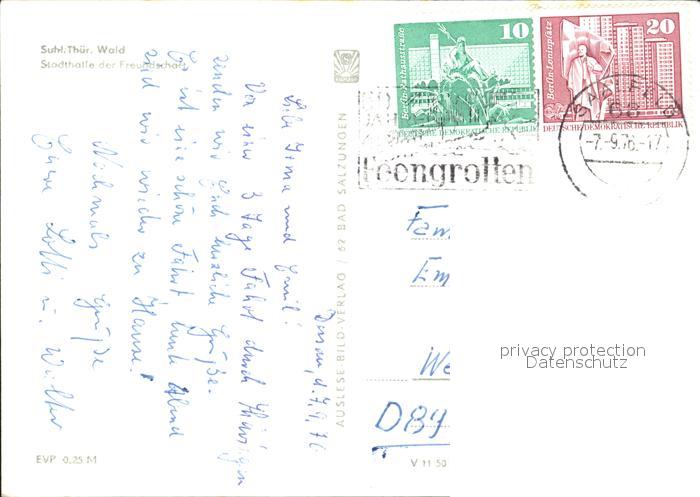 Suhl, Thür. Wald
Stadthalle der Freundschaft
Dessau, d. 7.9.76
Liebe Irma und Emil!
Von einer 3 Tage Fahrt durch Thüringen
senden wir Euch herzliche Grüße.
Es ist eine schöne Fahrt heute Abend
sind wir wieder zu Hause!
Nochmals Grüße
Eure Lotti u. Walter
EVP 0,25 M
AUSLESE-BILD-VERLAG / 62 BAD SALZUNGEN
V 11 50
10
Berlin-Rathausstraße
DEUTSCHE DEMOKRATISCHE REPUBLIK
20
Berlin-Leninplatz
DEUTSCHE DEMOKRATISCHE REPUBLIK
Feengrotten
SAALFELD
68
-7.-9.76.-17
Fam
Em
We
D89
privacy protection
Datenschutz